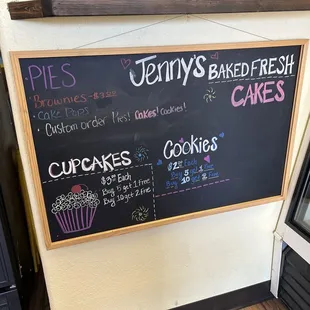 PIES
Jenny's BAKED FRESH
CAKES
Brownies
Cake Pops
Custom order Pies! Cakes! Cookies!
CUPCAKES
Each
Buy 5 get 1 Free
Buy 10 get 2 free
Cookies
Each
Buy 5 get 1 Free
Buy 10 get 2 Free